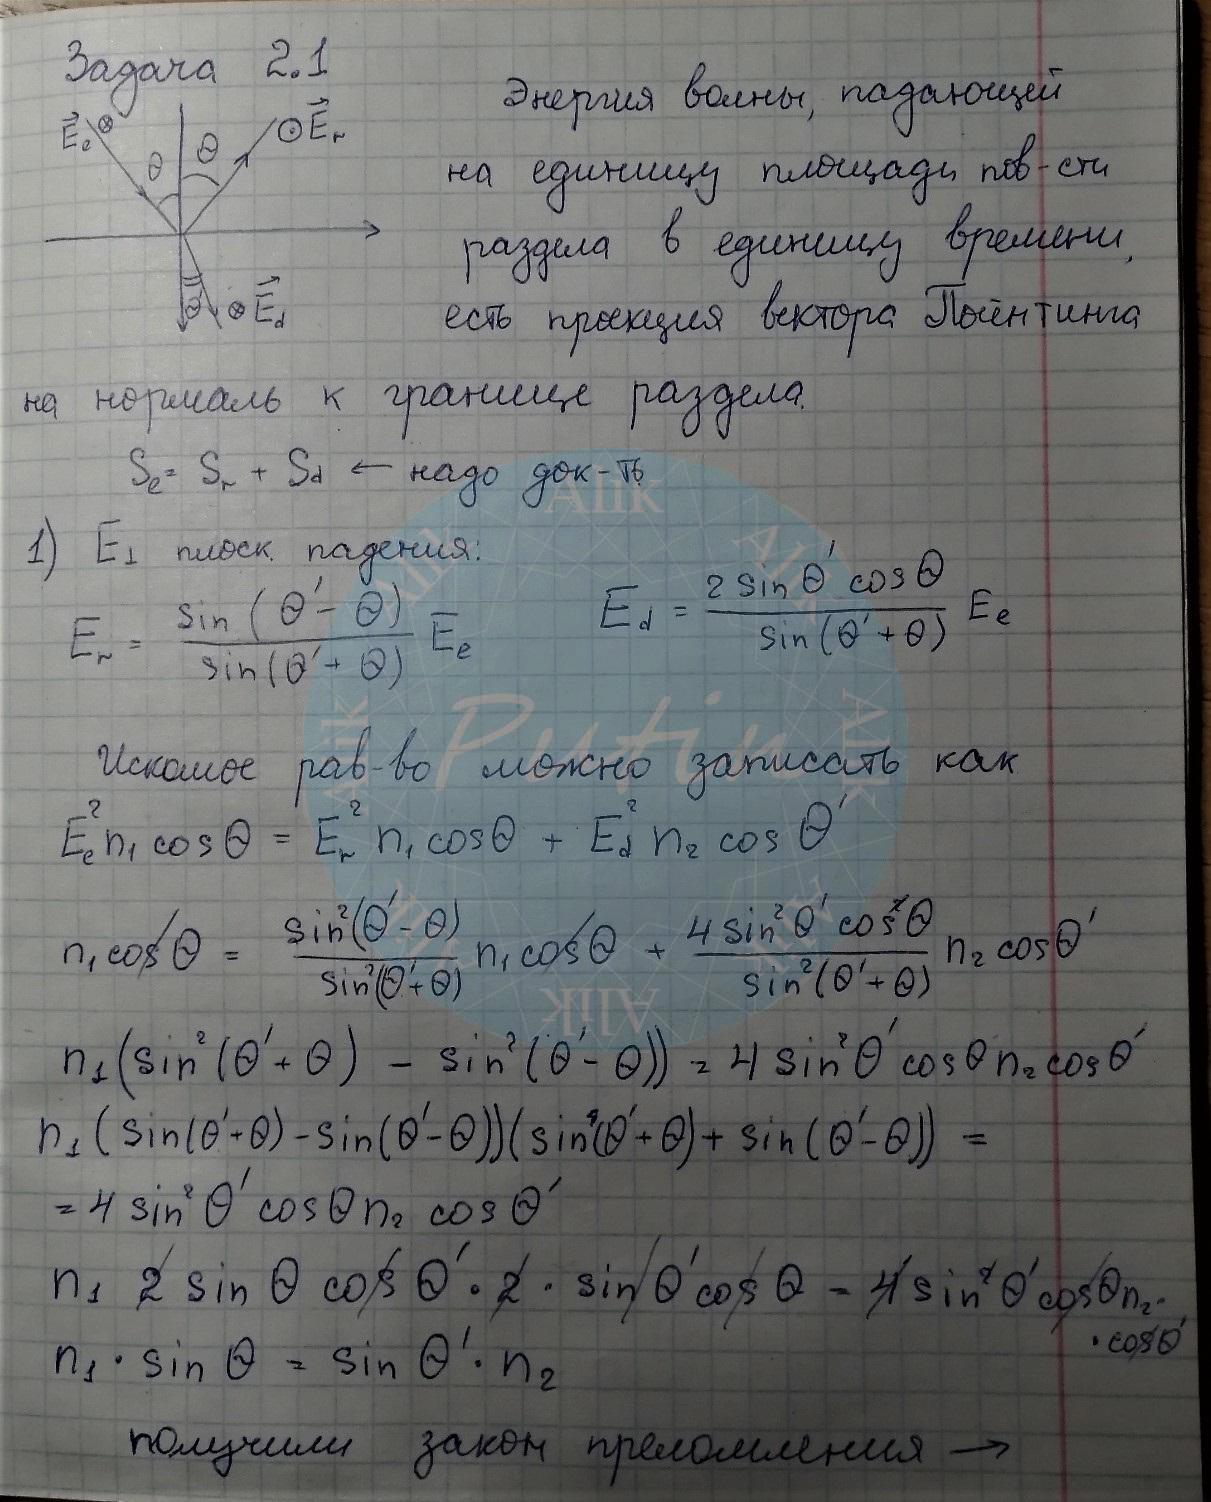 Задача 2.1
E⃗e ⊗ θ θ ⊙ E⃗r
θ' ⊗ E⃗d
Энергия волны, падающей
на единицу площади пов-сти
раздела в единицу времени,
есть проекция вектора Пойнтинга
на нормаль к границе раздела.
Se = Sr + Sd ← надо док-ть
1) E⊥ плоск. падения:
Er = sin(θ' - θ) / sin(θ' + θ) Ee    Ed = 2 sin θ' cos θ / sin(θ' + θ) Ee
Искомое рав-во можно записать как
Ee² n₁ cos θ = Er² n₁ cos θ + Ed² n₂ cos θ'
n₁ cos θ = sin²(θ' - θ) / sin²(θ' + θ) n₁ cos θ + 4 sin² θ' cos² θ / sin²(θ' + θ) n₂ cos θ'
n₁ (sin²(θ' + θ) - sin²(θ' - θ)) = 4 sin² θ' cos θ n₂ cos θ'
n₁ (sin(θ' + θ) - sin(θ' - θ))(sin(θ' + θ) + sin(θ' - θ)) =
= 4 sin² θ' cos θ n₂ cos θ'
n₁ 2 sin θ cos θ' · 2 · sin θ' cos θ = 4 sin² θ' cos θ n₂ ·
· cos θ'
n₁ · sin θ = sin θ' · n₂
получили закон преломления →
Putin
AliK
AliK
AliK
AliK
AliK
AliK
AliK
AliK